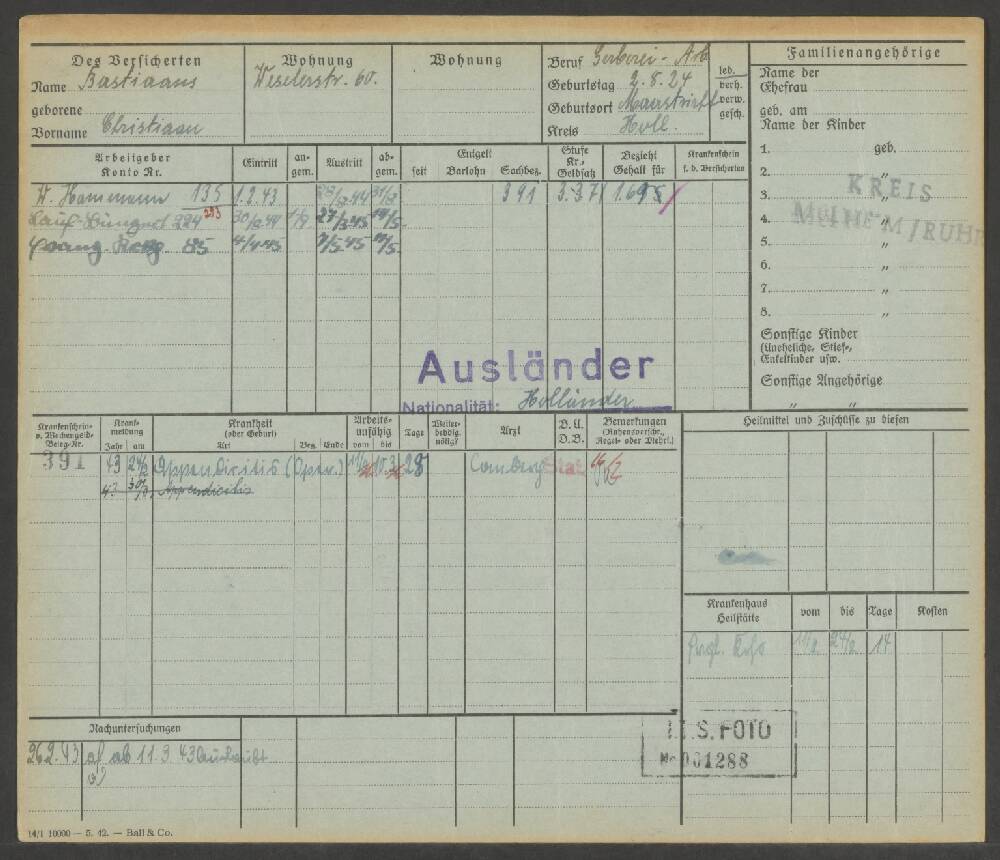 Des Versicherten
Name Bastiaans
geborene
Vorname Christiaan
Wohnung
Weselerstr. 60.
Wohnung
Beruf Gerberei-Arb
Geburtstag 2.8.24
Geburtsort Maastricht
Kreis Holl.
led.
verh.
verw.
gesch.
Familienangehörige
Name der
Ehefrau
geb. am
Name der Kinder
1. geb.
2. "
3. "
4. "
5. "
6. "
7. "
8. "
KREIS
MÜLHEIM/RUHR
Sonstige Kinder
(Uneheliche, Stief-,
Enkelkinder usw.
Sonstige Angehörige
" "
Arbeitgeber
Konto Nr.
Eintritt
an-
gem.
Austritt
ab-
gem.
Entgelt
seit Barlohn Sachbez.
Stufe
Kr.-
Geldsatz
Bezieht
Gehalt für
Krankenschein
f. d. Versicherten
W. Hammann 135 1.2.43 391 3.37 1.695
224 293 30/12 44
85 4/4 45
Ausländer
Nationalität: Holländer
Krankenschein-
u. Wochengeld-
Beleg-Nr.
Krank-
meldung
Jahr am
Krankheit
(oder Geburt)
Art Beg. Ende
Arbeits-
unfähig
vom bis
Tage
Weiter-
behdlg.
nötig?
Arzt
B.U.
O.B.
Bemerkungen
(Ruhensvorschr.,
Regel- oder Mehrl.)
391 43 24/2 Appendicitis (Oper.) 11/2 10.3 28 Camberg
43 Appendicitis
Heilmittel und Zuschüsse zu diesen
Krankenhaus
Heilstätte
vom bis Tage Kosten
11/2 24/2 14
Nachuntersuchungen
26.2.43 af ab 11.3.43
I.T.S. FOTO
No 001288
14/1 10000 — 5. 42. — Ball & Co.